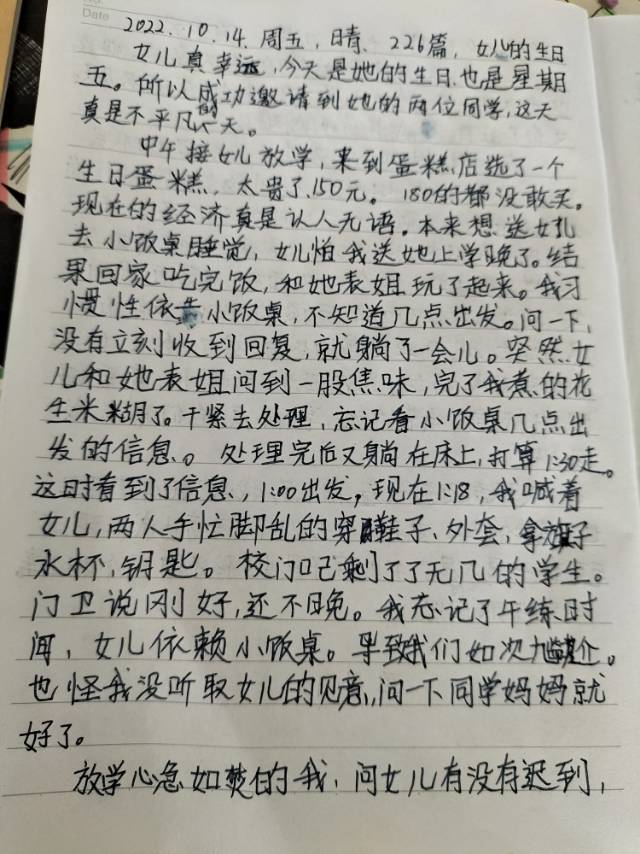 Date
2022.10.14.周五,晴、226篇,女儿的生日
女儿真幸运,今天是她的生日.也是星期
五。所以成功邀请到她的两位同学,这天
真是不平凡的一天。
中午接女儿放学,来到蛋糕店选了一个
生日蛋糕,太贵了,150元。180的都没敢买。
现在的经济真是让人无语。本来想送女儿
去小饭桌睡觉,女儿怕我送她上学晚了。结
果回家吃完饭,和她表姐玩了起来。我习
惯性依靠小饭桌,不知道几点出发。问一下,
没有立刻收到回复,就躺了一会儿。突然女
儿和她表姐问到一股焦味,完了我煮的花
生米糊了。干紧去处理,忘记看小饭桌几点出
发的信息。处理完后又躺在床上,打算1:30走。
这时看到了信息,1:00出发,现在1:18,我喊着
女儿,两人手忙脚乱的穿鞋子、外套,拿
水杯,钥匙。校门口已剩了了无几的学生。
门卫说刚好,还不晚。我忘记了午练时
间,女儿依赖小饭桌。导致我们如次尴尬。
也怪我没听取女儿的意,问一下同学妈妈就
好了。
放学心急如焚的我,问女儿有没有迟到,